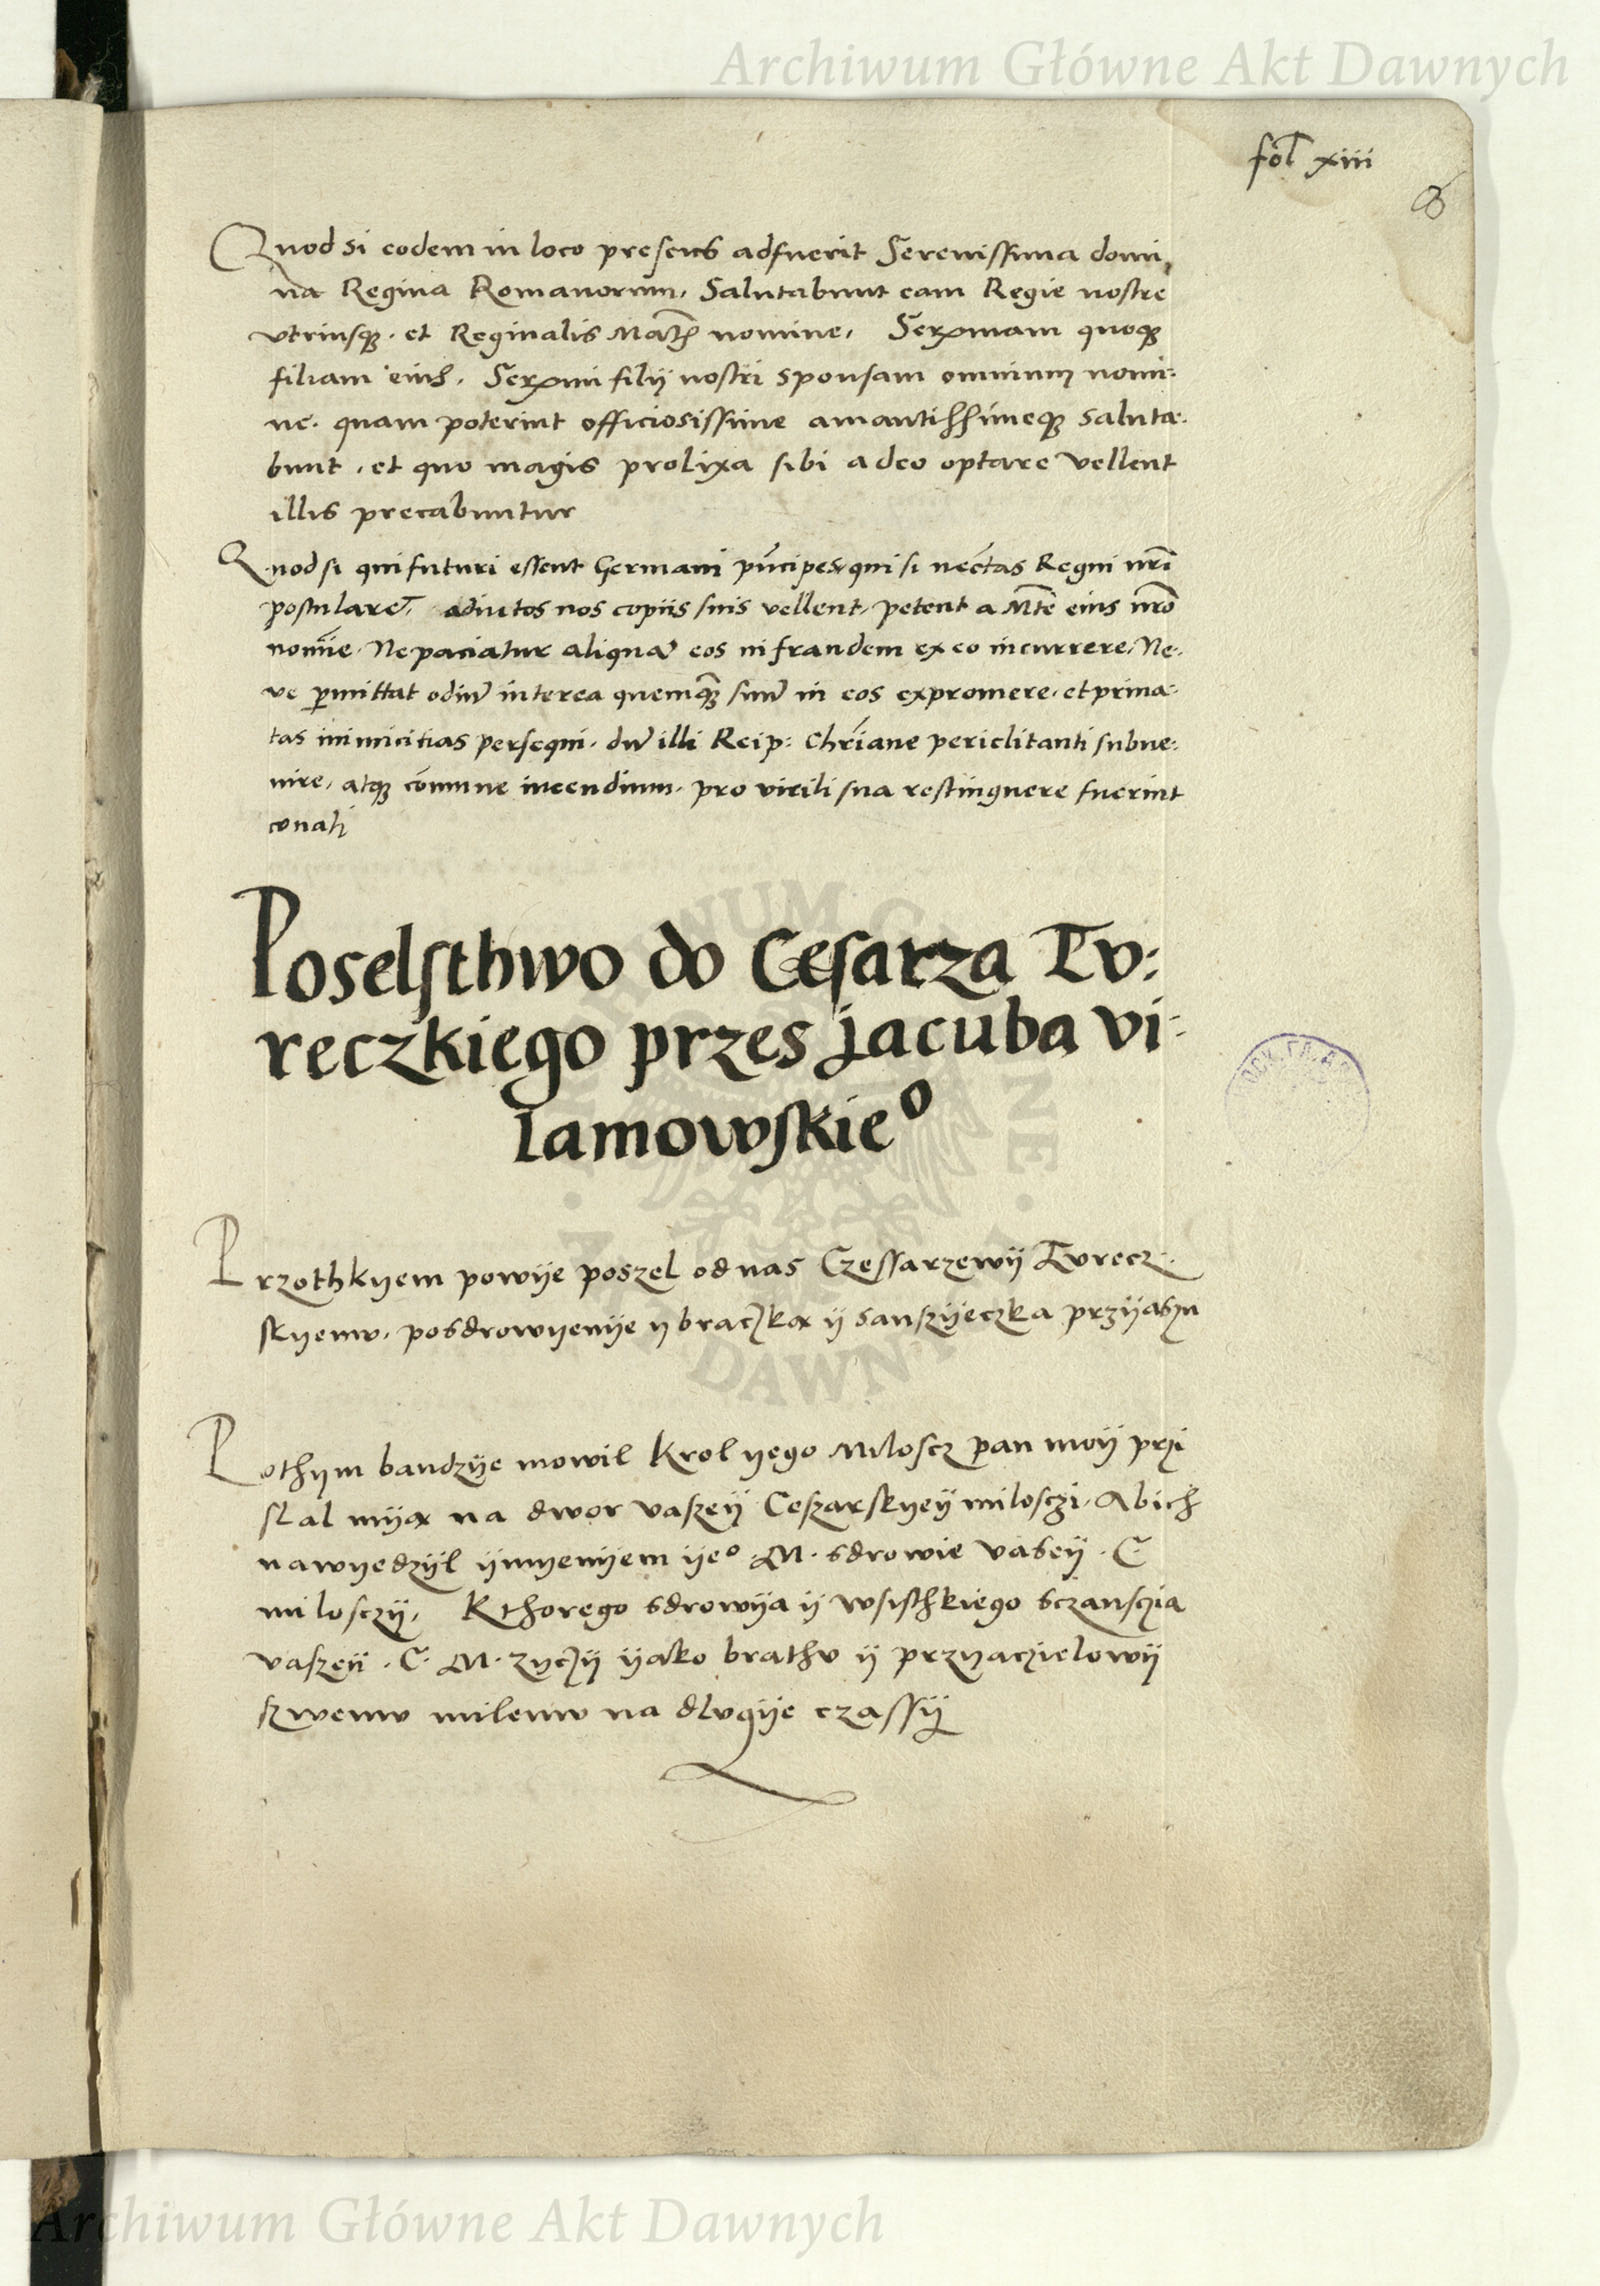 Archiwum Główne Akt Dawnych
fol xiii
8
Quod si eodem in loco presens adfuerit Serenissima domi,
na Regina Romanorum, Salutabunt eam Regie nostre
vtriusq3, et Reginalis Mtm nomine, Sermam quoq3
filiam eius, Sermi filij nostri sponsam omnium nomi:
ne, quam poterint officiosissime amantissimeq3 saluta:
bunt, et quo magis prolixa sibi a deo optare vellent
illis precabuntur
Quod si qui futuri essent Germani pncipes, qui si nectas Regni nri
postularet, adiutos nos copiis suis vellent, petent a Mte eius nro
nomine, Ne paciatur aliquam eos in fraudem ex eo incurrere, Ne:
ve pmittat odium interea quemq3 suum in eos expromere, et priua:
tas inimicitias persequi, dum illi Reip: Chriane periclitanti subue:
nire, atq3 comune incendium, pro virili sua restinguere fuerint
conati
Poselsthwo do Cesarza Tv:
reczkiego przes Jacuba vi:
lamowskieo
Przothkyem powije poszel od nas Czessarzewij Turecz:
skyemv, posdrowyenije y braczka ij sanszijeczka przijaszn
Pothym bandzije mowil Krol yego Miloscz pan moij przi
slal mija na dwor vaszeij Ceszarskyeij milosczi, Abich
nawyedzijl ijmyenijem ijeo .M. sdrowie vaseij .C.
milosczij, Kthorego sdrowija ij wsisthkiego sczansczia
vaszeij .C. M. zyczij ijako brathv ij przyaczielowij
szwemv milemv na dlvgije czassij
Archiwum Główne Akt Dawnych